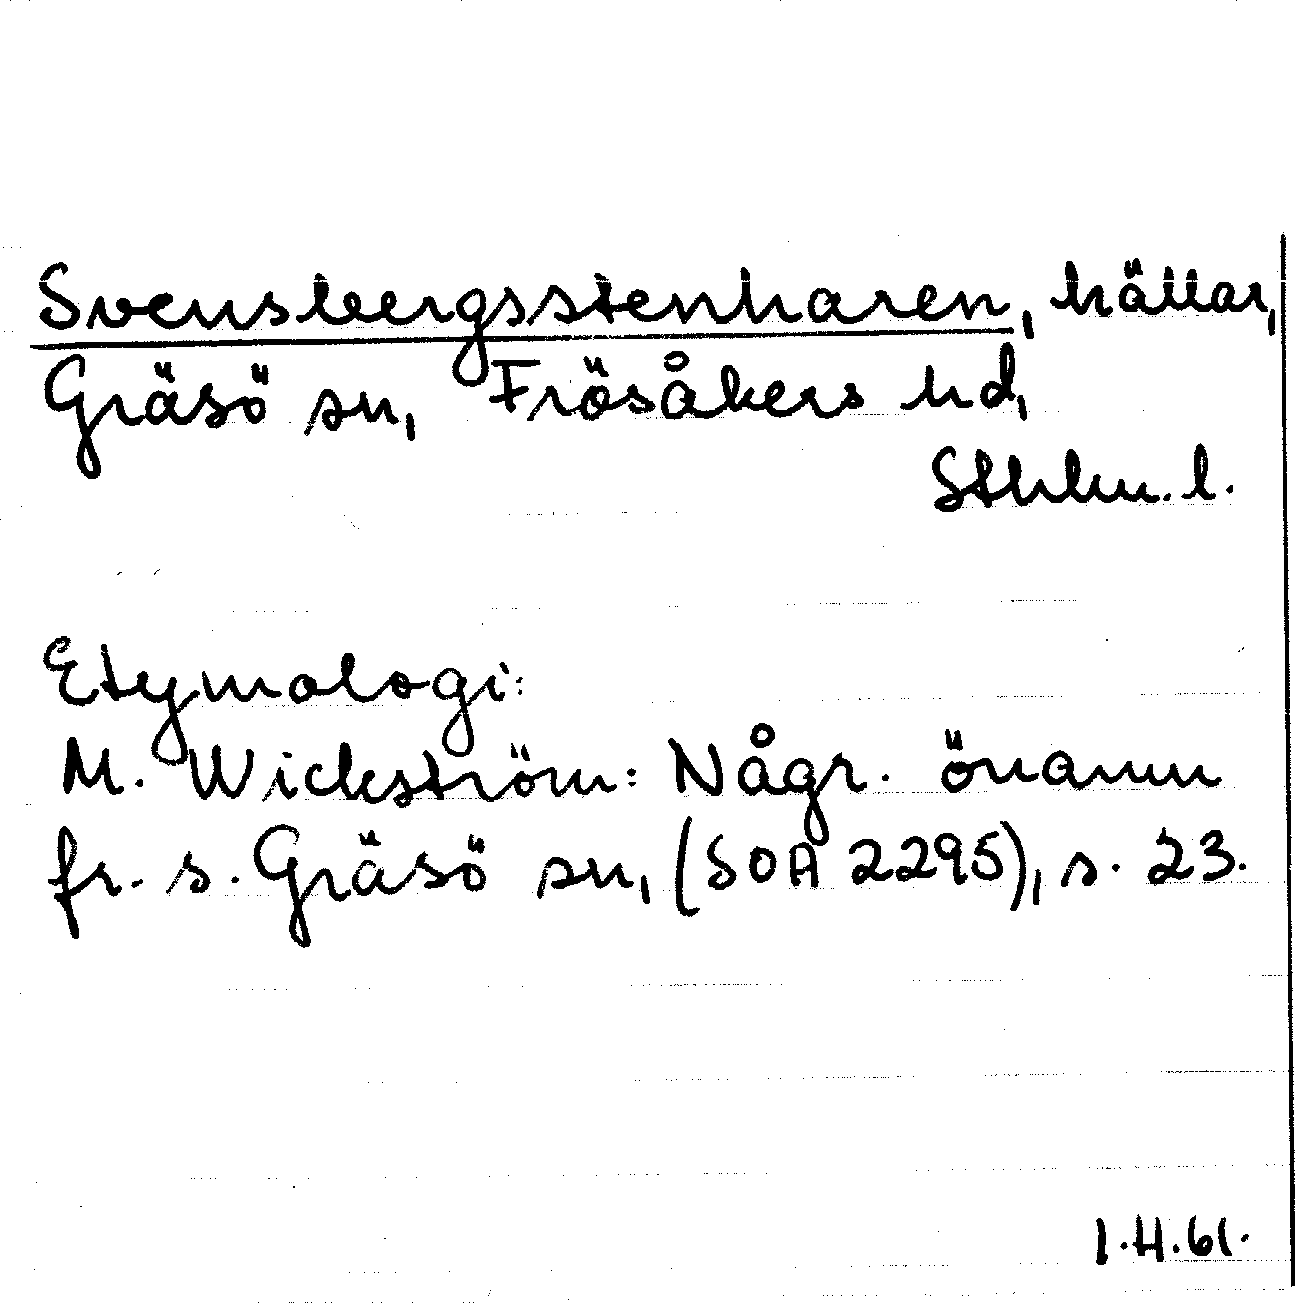 Svensbergsstenharen, hällar,
Gräsö sn, Frösåkers hd,
Sthlm. l.
Etymologi:
M. Wickström: Någr. önamn
fr. s. Gräsö sn, (SOA 2295), s. 23.
1.H.61.